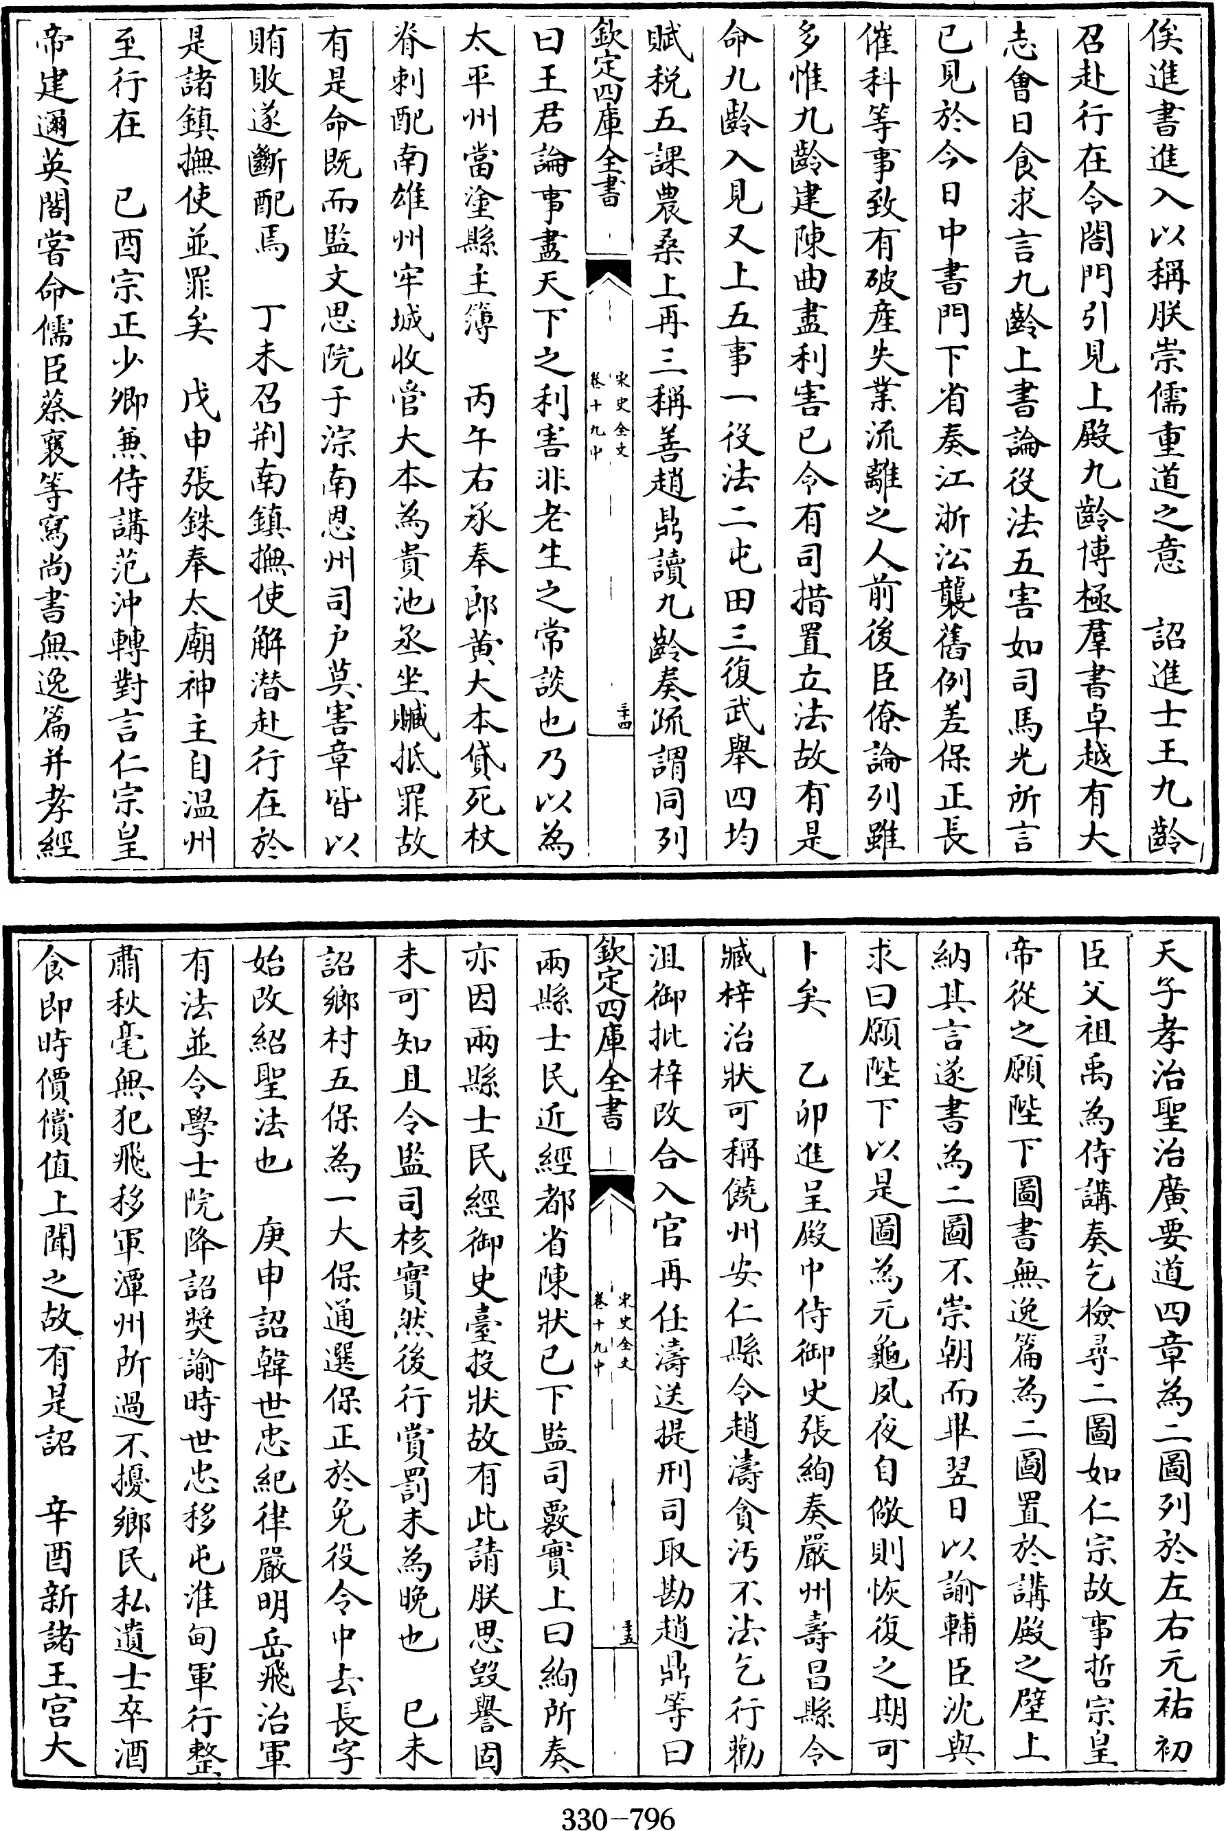 俟進書進入以稱朕崇儒重道之意　詔進士王九齡
召赴行在令閤門引見上殿九齡博極羣書卓越有大
志會日食求言九齡上書論役法五害如司馬光所言
已見於今日中書門下省奏江浙㳂襲舊例差保正長
催科等事致有破產失業流離之人前後臣僚論列雖
多惟九齡建陳曲盡利害已令有司措置立法故有是
命九齡入見又上五事一役法二屯田三復武舉四均
賦稅五課農桑上再三稱善趙鼎讀九齡奏疏謂同列
欽定四庫全書
宋史全文
卷十九中
三十四
曰王君論事盡天下之利害非老生之常談也乃以為
太平州當塗縣主簿　丙午右承奉郎黄大本貸死杖
脊刺配南雄州牢城收管大本為貴池丞坐贓抵罪故
有是命既而監文思院于淙南恩州司户莫害章皆以
賄敗遂斷配焉　丁未召荆南鎮撫使解潛赴行在於
是諸鎮撫使並罪矣　戊申張銖奉太廟神主自温州
至行在　己酉宗正少卿兼侍講范沖轉對言仁宗皇
帝建邇英閣嘗命儒臣蔡襄等寫尚書無逸篇并孝經
天子孝治聖治廣要道四章為二圖列於左右元祐初
臣父祖禹為侍講奏乞檢尋二圖如仁宗故事哲宗皇
帝從之願陛下圖書無逸篇為二圖置於講殿之壁上
納其言遂書為二圖不崇朝而畢翌日以諭輔臣沈與
求曰願陛下以是圖為元龜夙夜自儆則恢復之期可
卜矣　乙卯進呈殿中侍御史張絢奏嚴州壽昌縣令
臧梓治狀可稱饒州安仁縣令趙濤貪汚不法乞行勸
沮御批梓改合入官再任濤送提刑司取勘趙鼎等曰
欽定四庫全書
宋史全文
卷十九中
三十五
兩縣士民近經都省陳狀已下監司覈實上曰絢所奏
亦因兩縣士民經御史臺投狀故有此請朕思毁譽固
未可知且令監司核實然後行賞罰未為晚也　己未
詔鄉村五保為一大保通選保正於免役令中去長字
始改紹聖法也　庚申詔韓世忠紀律嚴明岳飛治軍
有法並令學士院降詔奬諭時世忠移屯淮甸軍行整
肅秋毫無犯飛移軍潭州所過不擾鄉民私遺士卒酒
食即時價償值上聞之故有是詔　辛酉新諸王宫大
330-796